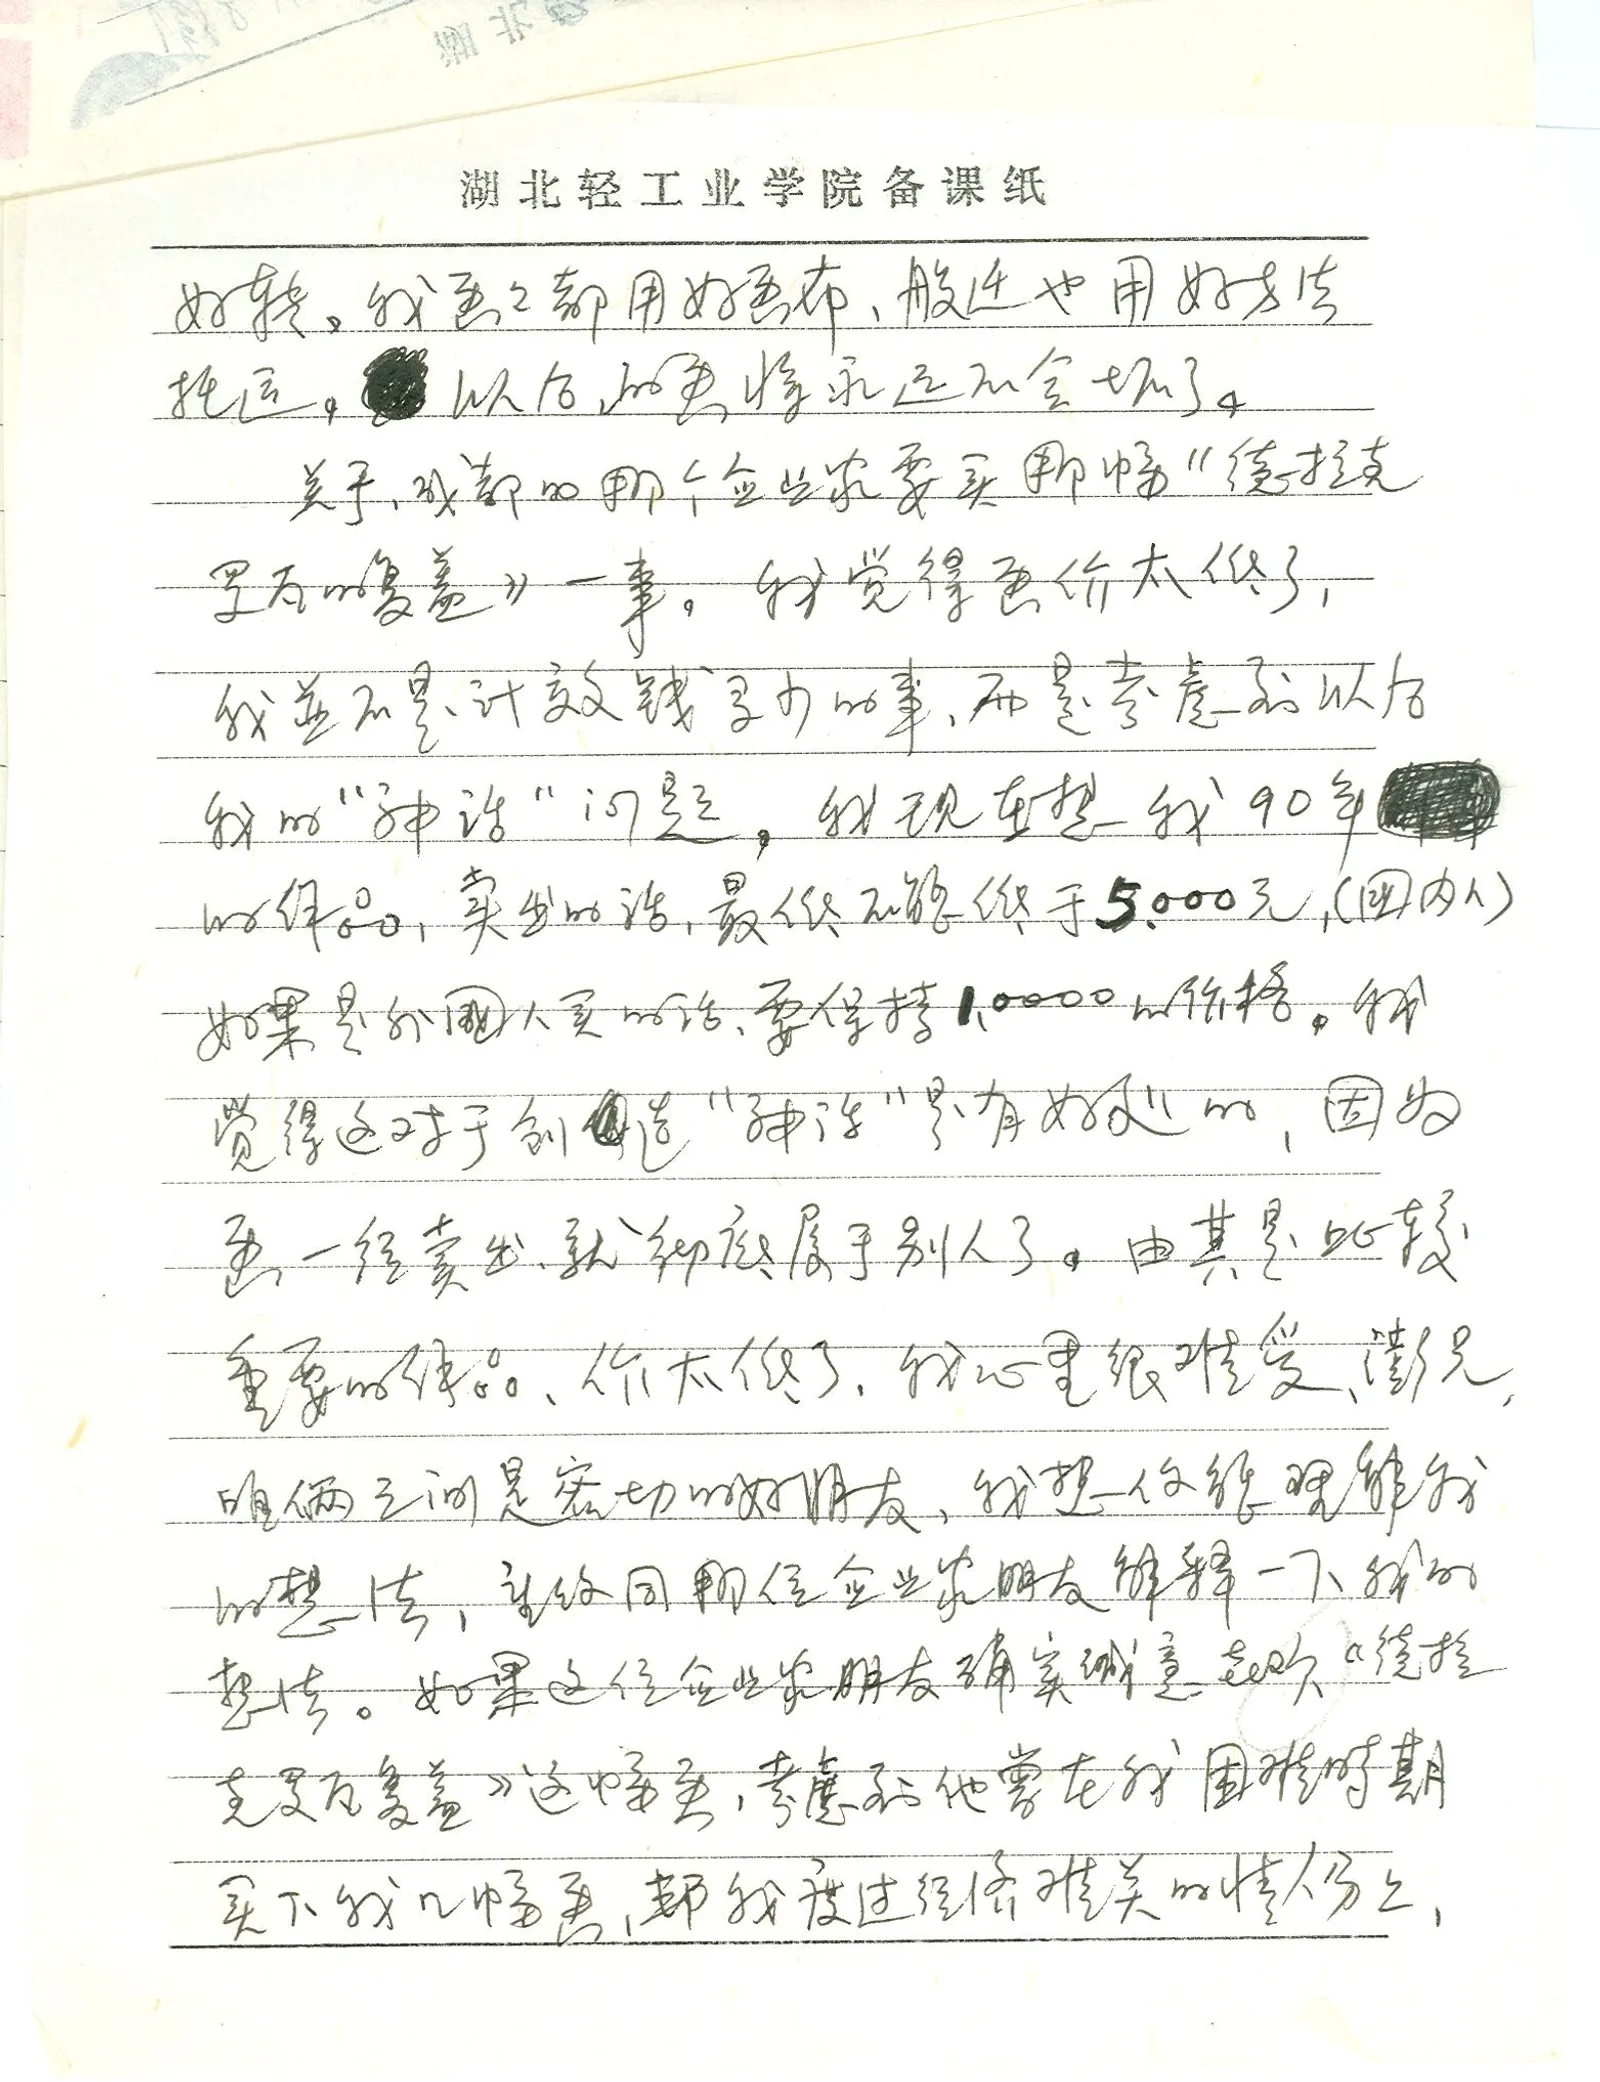 湖北轻工业学院备课纸
好转。我画也都用好画布、般迁也用好方法
托运。以后的画将永远不会坏了。
关于、成都的那个企业家要买那幅“德拉克
罗瓦的复盖》一事。我觉得画价太低了,
我並不是计较钱多少的事、而是考虑到以后
我的“神话”问题。我现在想我90年
的作品,卖出的话,最低不能低于5.000元,(国内人)
如果是外国人买的话、要保持1.0000的价格。我
觉得这对于创造“神话”是有好处的,因为
画一经卖出、就彻底属于别人了。由其是比较
重要的作品、价太低了、我心里很难受、澎兄,
咱俩之间是密切的好朋友、我想你能理解我
的想法,並给同那位企业家朋友解释一下我的
想法。如果这位企业家朋友确实诚意喜欢《德拉
克罗瓦复盖》这幅画,考虑到他曾在我困难时期
买下我几幅画,帮我度过经济难关的情份上,